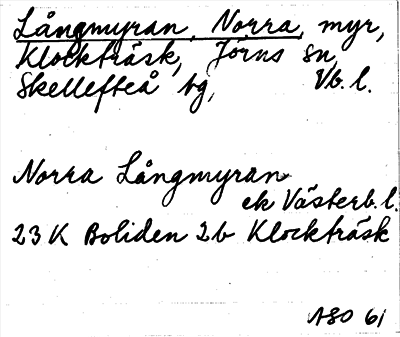 Långmyran, Norra, myr,
Klockträsk, Jörns sn,
Skellefteå bg, Vb. l.
Norra Långmyran
ek Västerb. l.
23 K Boliden 2b Klockträsk
ASO 61